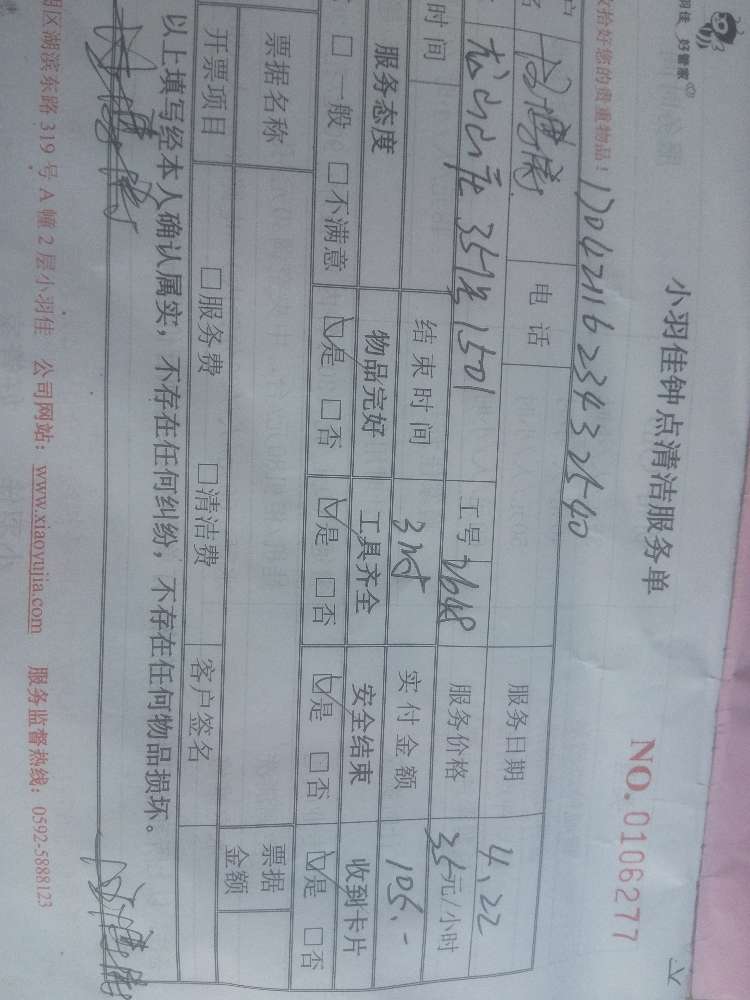 小羽佳 好管家
小羽佳钟点清洁服务单
NO. 0106277
收拾好您的贵重物品！
17042116234322540
电话 服务日期 4.22
龙山山庄35号1501 工号 2648 服务价格 35元/小时
时间 结束时间 3时 实付金额 105.-
服务态度 物品完好 工具齐全 安全结束 收到卡片
□一般 □不满意 ☑是 □否 ☑是 □否 ☑是 □否 ☑是 □否
票据名称 票据金额
开票项目 □服务费 □清洁费 客户签名
以上填写经本人确认属实，不存在任何纠纷，不存在任何物品损坏。
明区湖滨东路 319 号 A 幢 2 层小羽佳 公司网站：www.xiaoyujia.com 服务监督热线：0592-5888123